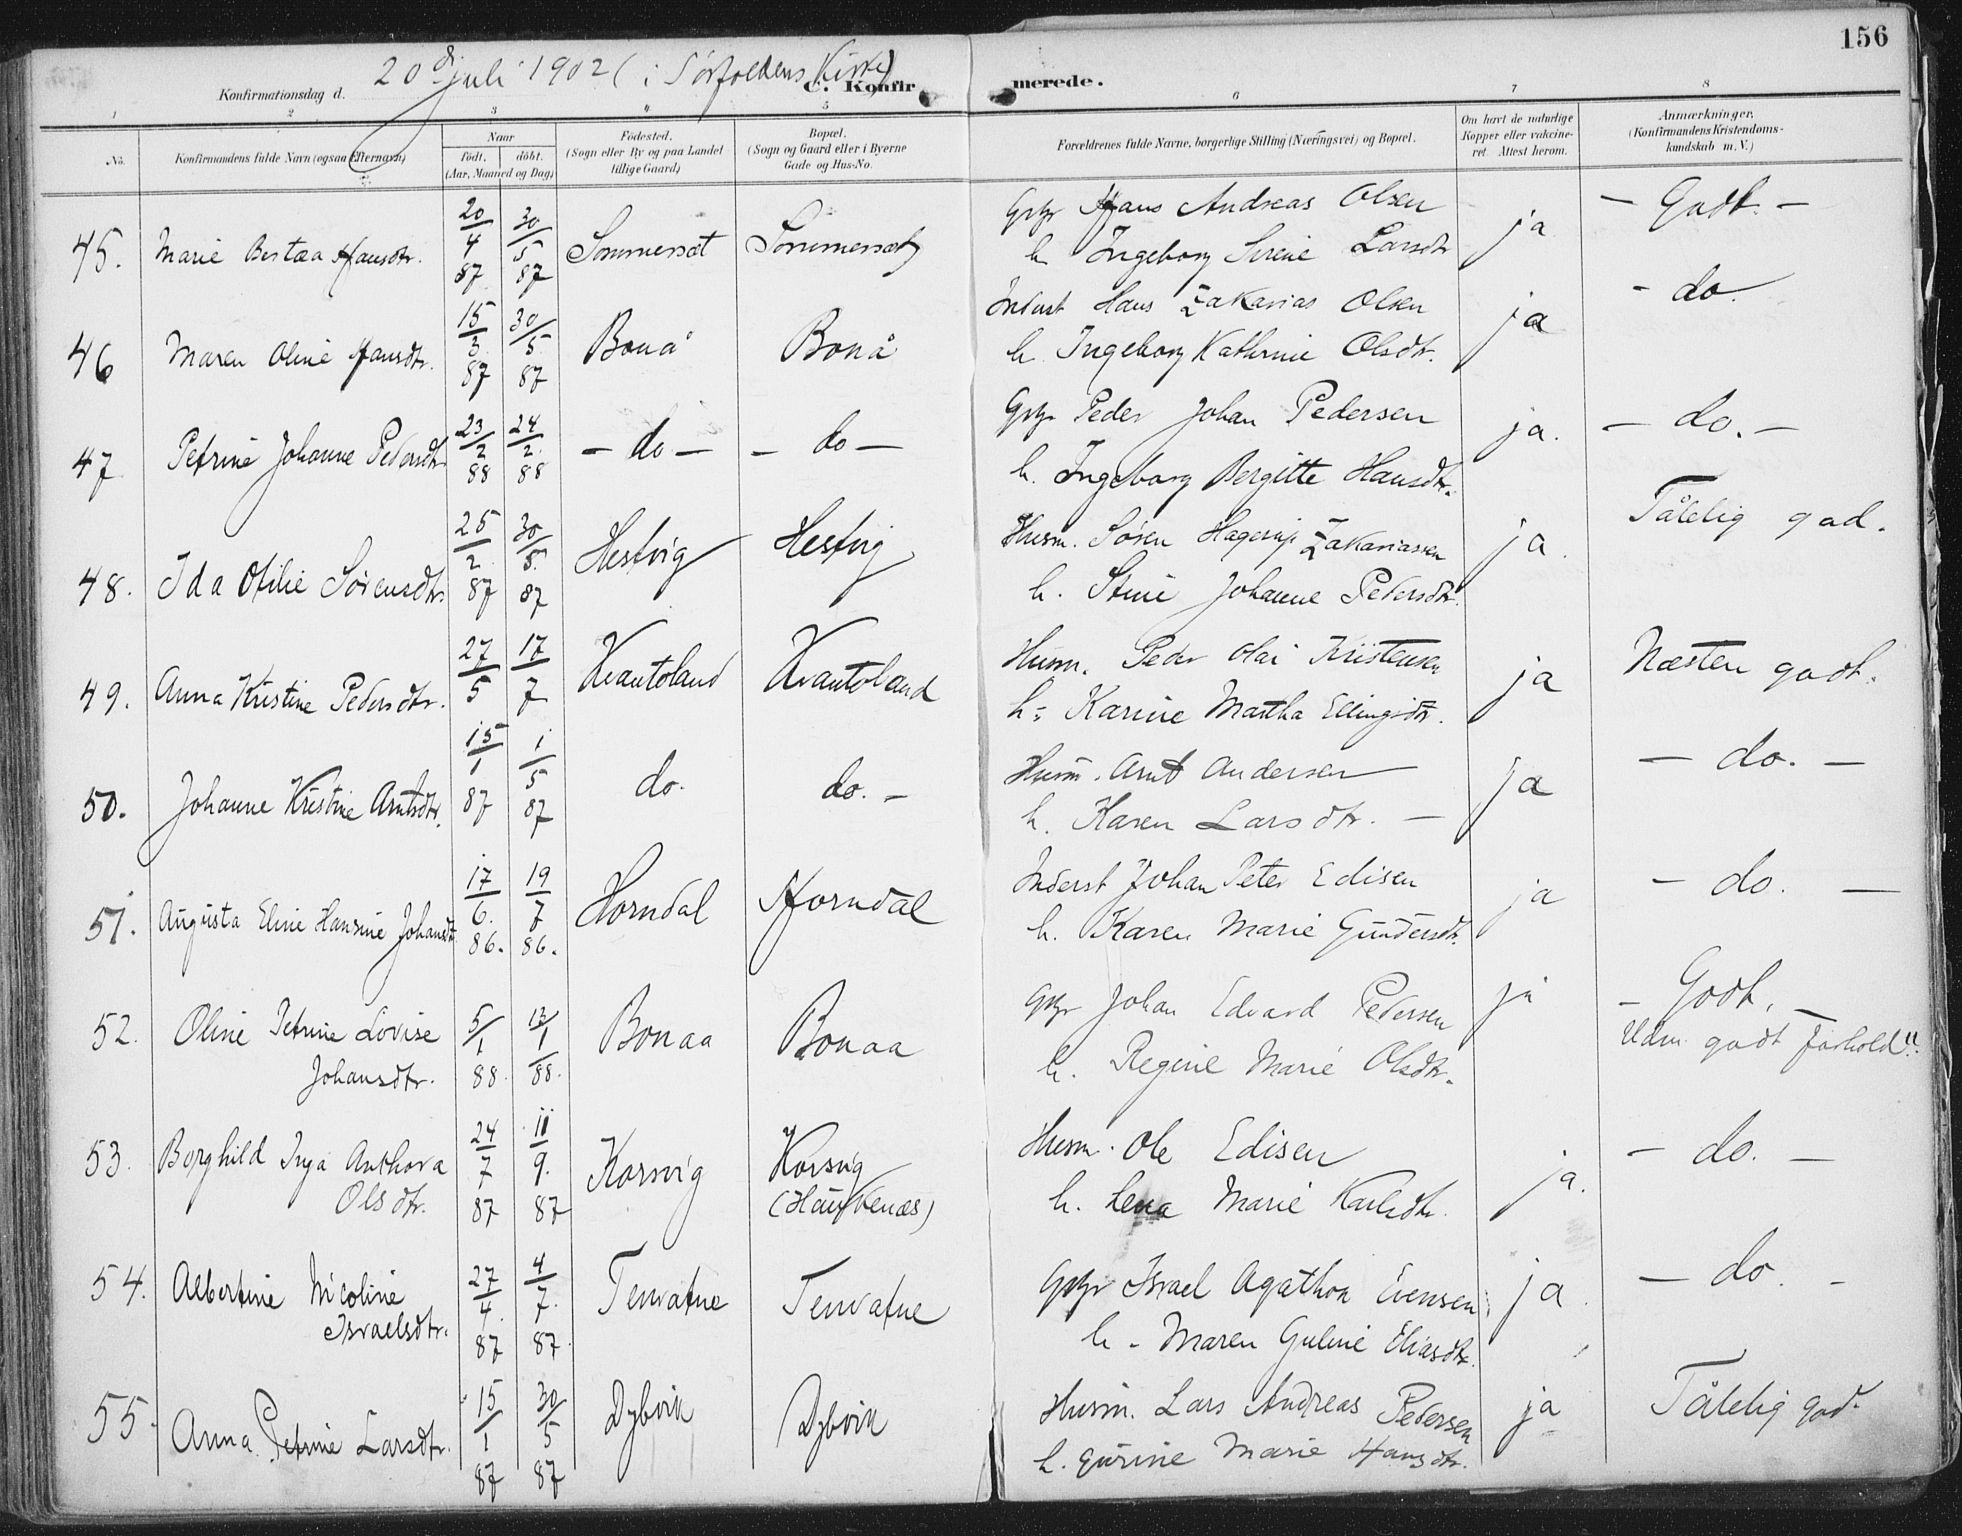 156
20de juli 1902 (i Sørfoldens Kirke)
Konfirmationsdag d.
C. Konfirmerede.
1 2 3 4 5 6 7 8
No.
Konfirmandens fulde Navn (ogsaa Efternavn)
Naar
födt. döbt.
(Aar, Maaned og Dag)
Födested.
(Sogn eller By og paa Landet
tillige Gaard)
Bopæl.
(Sogn og Gaard eller i Byerne
Gade og Hus-No.
Forældrenes fulde Navne, borgerlige Stilling (Næringsvei) og Bopæl.
Om havt de naturlige
Kopper eller vakcine-
ret. Attest herom.
Anmærkninger.
(Konfirmandens Kristendoms-
kundskab m. V.)
45. Marie Hansdtr. 20/4 87 30/5 87 Sommerset Sommerset
Gbr Hans Andreas Olsen ja - Godt. -
h. Ingeborg Sirene Larsdtr
46 Maren Oline Hansdtr. 15/3 87 30/5 87 Bonå Bonå
Inderst Hans Zakarias Olsen ja - do.
h. Ingeborg Kathrine Olsdtr.
47 Petrine Johanne Pedersdtr 23/2 88 24/2 88 - do - - do -
Gbr Peder Johan Pedersen ja. - do. -
h. Ingeborg Bergitte Hansdtr.
48. Ida Otilie Sørensdtr. 25/2 87 30/5 87 Hestvig Hestvig
Husm. Søren Hagerup Zakariassen ja. Tålelig god.
h. Stine Johanne Pedersdtr.
49. Anna Kristine Pedersdtr. 27/5 17/7 Kvantoland Kvantoland
Husm. Peder Olai Kristensen ja Næsten godt.
h. Karine Martha Ellingsdtr.
50. Johanne Kristine Arntsdtr. 15/1 87 1/5 87 do. do. -
Husm. Arnt Andersen ja - do. -
h. Karen Larsdtr. -
51. Augusta Eline Hansine Johansdtr 17/6. 86. 19/7 86. Horndal Horndal
Inderst Johan Peter Edisen ja - do. -
h. Karen Marie Gundersdtr.
52. Oline Petrine Lovise 5/1 88. 13/1 88. Bonaa Bonaa
Johansdtr.
Gbr Johan Edvard Pedersen ja - Godt. -
h. Regine Marie Olsdtr. Udm. godt forhold!!
53. Borghild Inga Anthora 24/7 87 11/9. 87 Korsvig Korsvig
Olsdtr. (Haukenæs)
Husm. Ole Edisen ja. - do. -
h. Lena Marie Karlsdtr.
54. Albertine Nicoline 27/4. 87 4/7. 87. Tenvatne Tenvatne
Israelsdtr.
Gbr Israel Agathon Evensen ja. - do. -
h. Maren Guline Eliasdtr.
55. Anna Petrine Larsdtr. 15/1 87 30/5 87 Dybvik Dybvik
Husm. Lars Andreas Pedersen ja Tålelig god.
h. Gurine Marie Hansdtr.